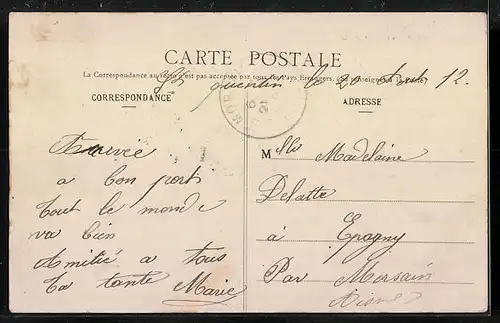 CARTE POSTALE
La Correspondance au recto n'est pas acceptée par tous les Pays Étrangers.
St Quentin le 20 12.
CORRESPONDANCE
ADRESSE
Arrivée
a bon port
tout le monde
va bien
Amitié a tous
ta tante Marie
Mlle Madelaine
Delattre
à Epagny
Par Morsain
Aisne
MOR
6
21